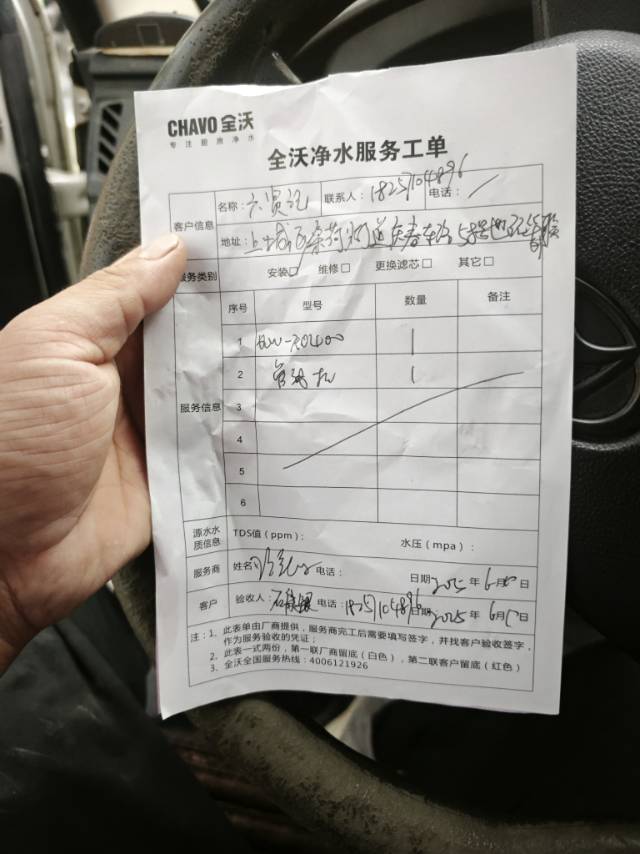 CHAVO 全沃
专注厨房净水
全沃净水服务工单
客户信息
名称： 联系人：18257104896 电话：/
地址：
服务类别 安装□ 维修□ 更换滤芯□ 其它□
服务信息
序号 型号 数量 备注
1 1
2 管线机 1
3
4
5
6
源水水质信息 TDS值（ppm）： 水压（mpa）：
服务商 姓名 电话： 日期：2025年6月 日
客户 验收人： 电话：18257104896 日期：2025年6月 日
注：1、此表单由厂商提供，服务商完工后需要填写签字，并找客户验收签字，
作为服务验收的凭证；
2、此表一式两份，第一联厂商留底（白色），第二联客户留底（红色）
3、全沃全国服务热线：4006121926